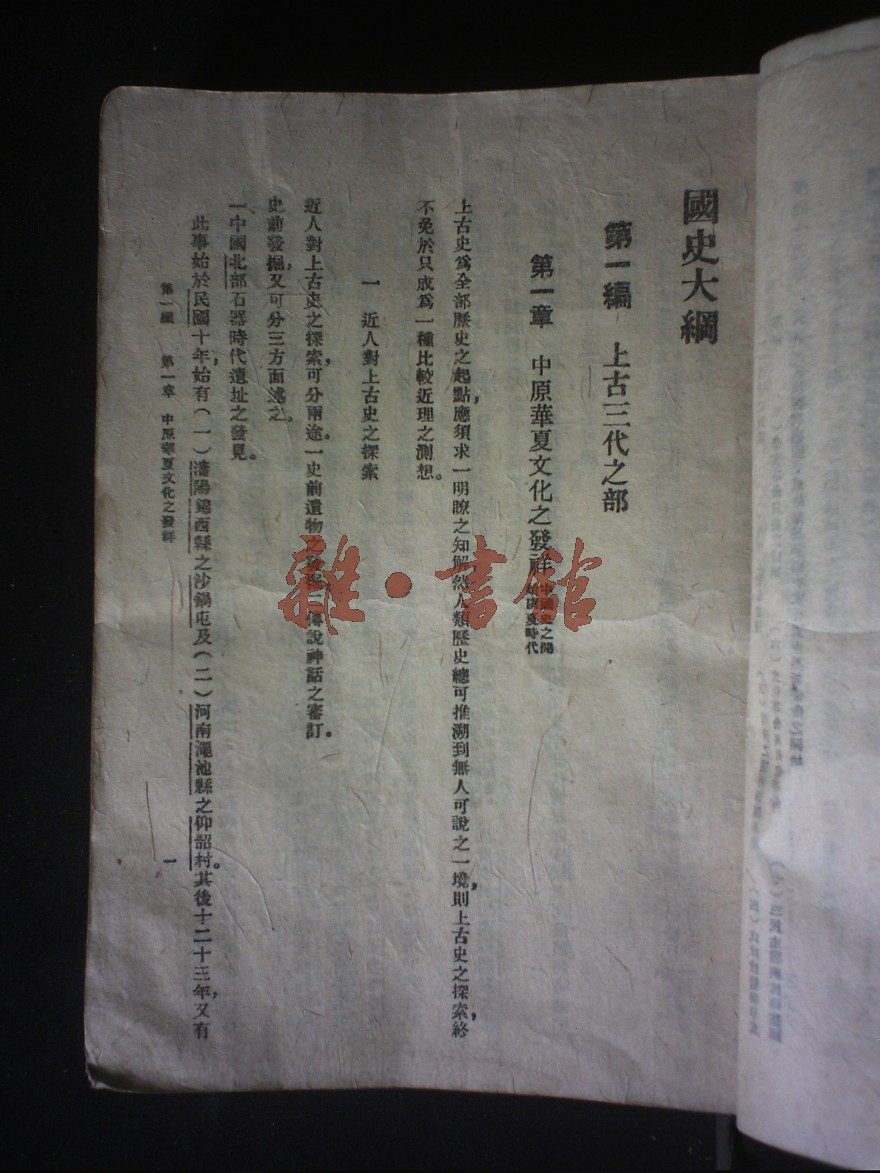 國史大綱
第一編　上古三代之部
第一章　中原華夏文化之發祥　中國史之開
始虞夏時代
上古史爲全部歷史之起點，應須求一明瞭之知解。然人類歷史總可推溯到無人可說之一境，則上古史之探索，終
不免於只成爲一種比較近理之測想。
一　近人對上古史之探索
近人對上古史之探索，可分兩途。一史前遺物之發掘，二傳說神話之審訂。
史前發掘，又可分三方面述之。
一、中國北部石器時代遺址之發見。
此事始於民國十年，始有（一）瀋陽錦西縣之沙鍋屯及（二）河南澠池縣之仰韶村。其後十二十三年，又有
第一編　第一章　中原華夏文化之發祥
一
雜·書館